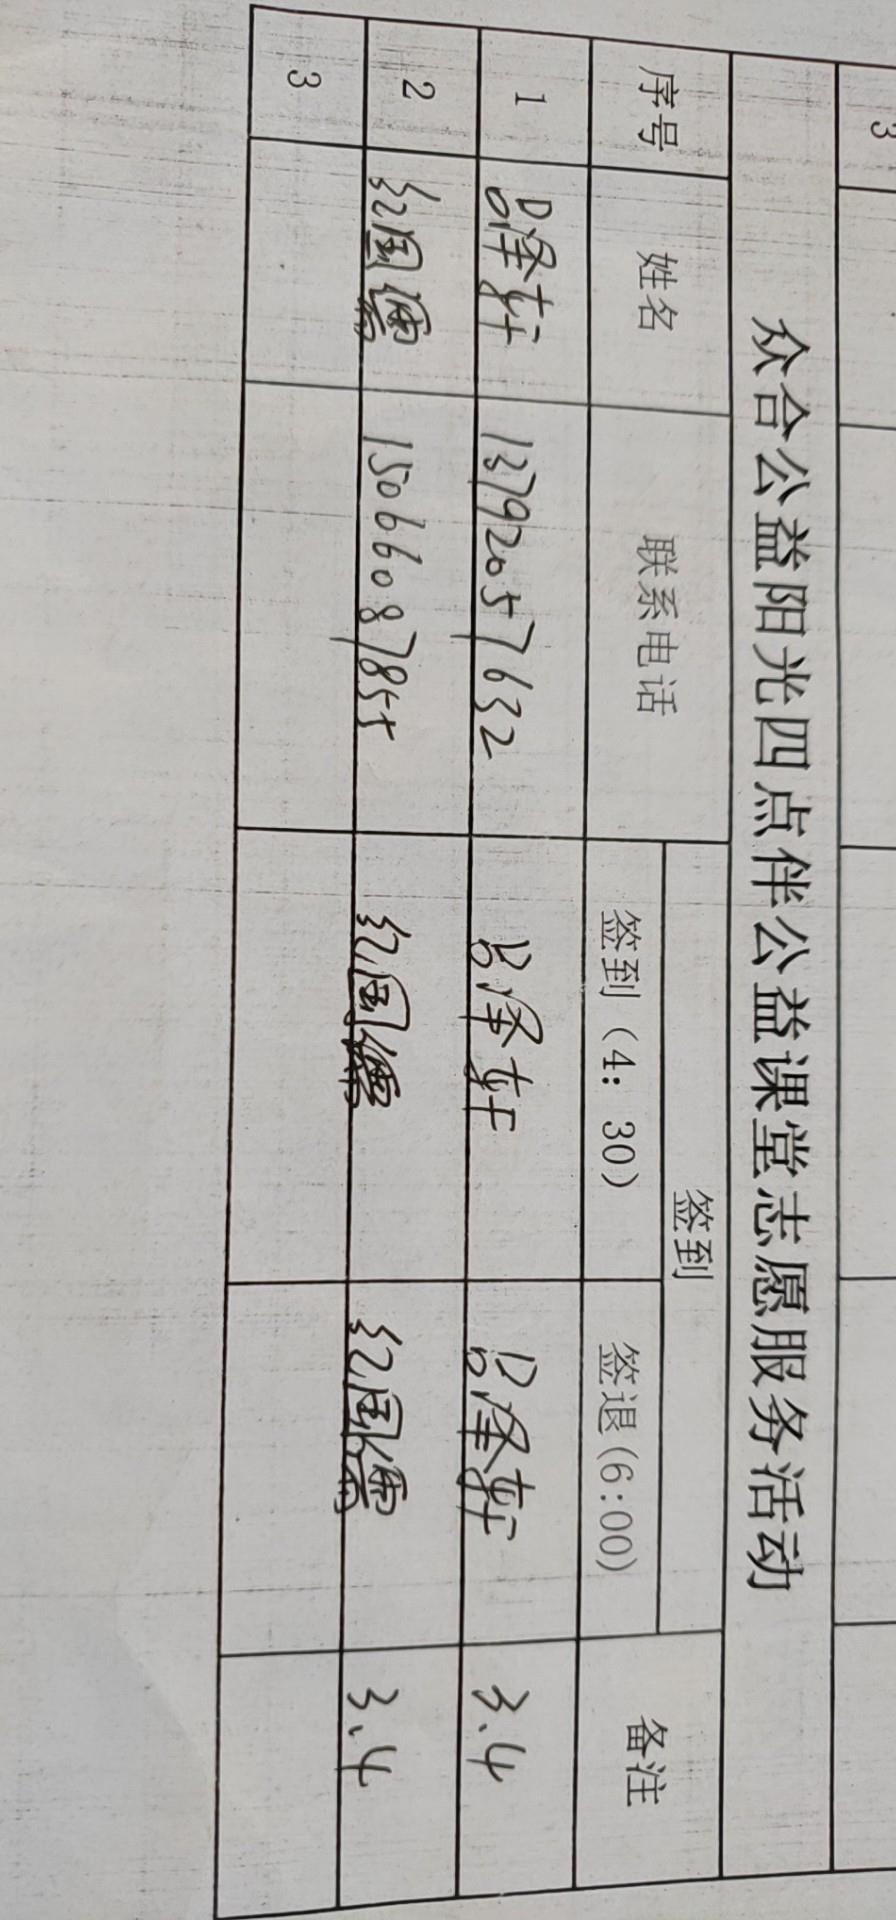 3
众合公益阳光四点伴公益课堂志愿服务活动
序号 姓名 联系电话 签到 备注
签到（4：30） 签退(6:00)
1 吕泽轩 13792057632 吕泽轩 吕泽轩 3.4
2 红国儒 15066087855 红国儒 红国儒 3.4
3